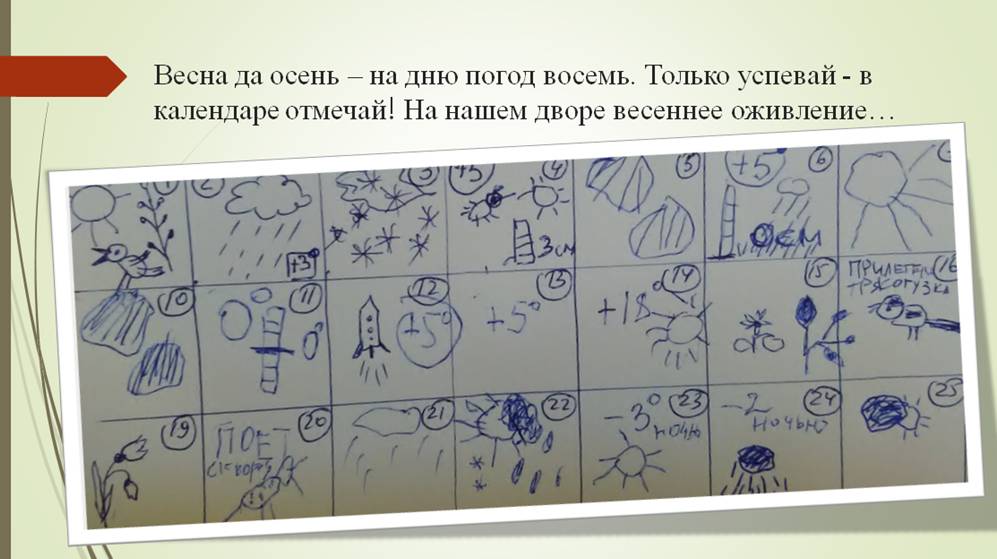 Весна да осень – на дню погод восемь. Только успевай - в
календаре отмечай! На нашем дворе весеннее оживление…
2
+3°
3
+5°
4
3 см
5
+5°
6
0 см
10
11
0°
12
+5°
13
+5°
14
+18°
15
16
ПРИЛЕТЕЛ
ТРЯСОГУЗКА
19
20
ПОЁТ
21
22
23
-3°
НОЧЬЮ
24
-2
НОЧЬЮ
25